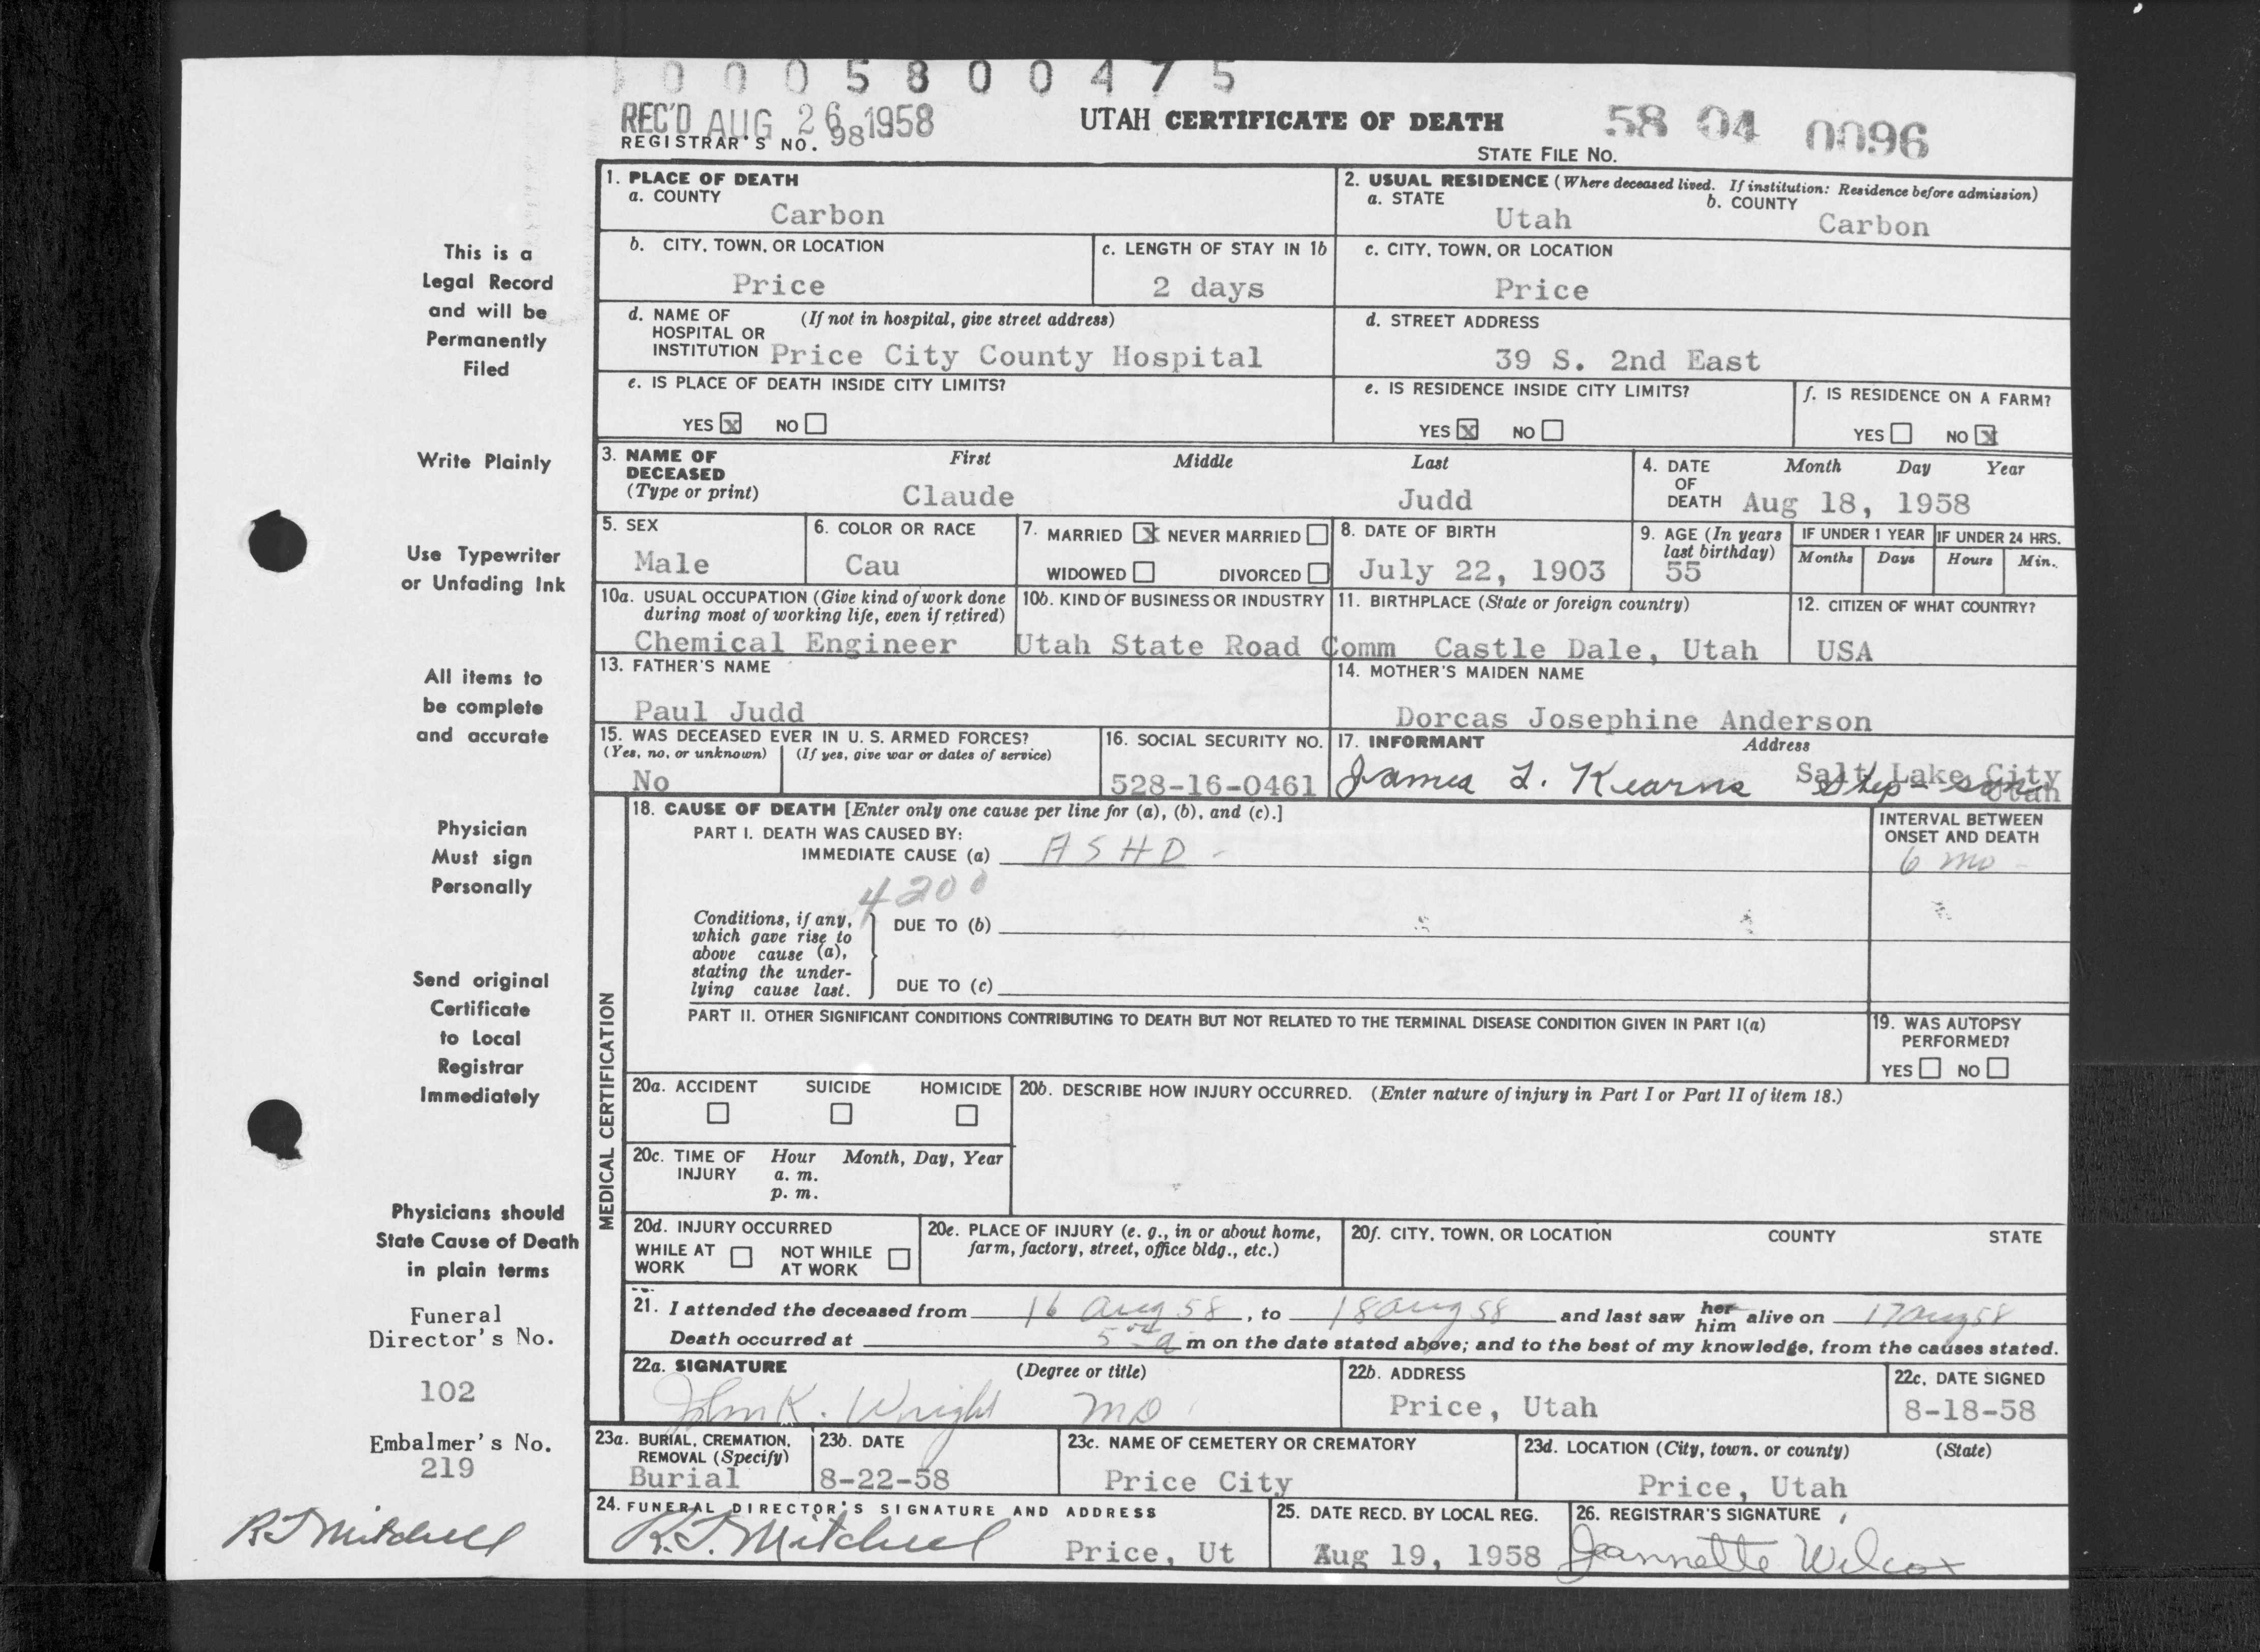 0 0 0 5 8 0 0 4 7 5
REC'D AUG 26 1958
UTAH CERTIFICATE OF DEATH
58 04 0096
REGISTRAR'S NO. 98
STATE FILE NO.
This is a
Legal Record
and will be
Permanently
Filed
Write Plainly
Use Typewriter
or Unfading Ink
All items to
be complete
and accurate
Physician
Must sign
Personally
Send original
Certificate
to Local
Registrar
Immediately
Physicians should
State Cause of Death
in plain terms
Funeral
Director's No.
102
Embalmer's No.
219
R J Mitchell
1. PLACE OF DEATH
a. COUNTY
Carbon
2. USUAL RESIDENCE (Where deceased lived. If institution: Residence before admission)
a. STATE
Utah
b. COUNTY
Carbon
b. CITY, TOWN, OR LOCATION
Price
c. LENGTH OF STAY IN 1b
2 days
c. CITY, TOWN, OR LOCATION
Price
d. NAME OF (If not in hospital, give street address)
HOSPITAL OR
INSTITUTION Price City County Hospital
d. STREET ADDRESS
39 S. 2nd East
e. IS PLACE OF DEATH INSIDE CITY LIMITS?
YES X NO
e. IS RESIDENCE INSIDE CITY LIMITS?
YES X NO
f. IS RESIDENCE ON A FARM?
YES NO X
3. NAME OF DECEASED (Type or print)
First Middle Last
Claude Judd
4. DATE OF DEATH
Month Day Year
Aug 18, 1958
5. SEX
Male
6. COLOR OR RACE
Cau
7. MARRIED X NEVER MARRIED
WIDOWED DIVORCED
8. DATE OF BIRTH
July 22, 1903
9. AGE (In years last birthday)
55
IF UNDER 1 YEAR
Months Days
IF UNDER 24 HRS.
Hours Min.
10a. USUAL OCCUPATION (Give kind of work done
during most of working life, even if retired)
Chemical Engineer
10b. KIND OF BUSINESS OR INDUSTRY
Utah State Road Comm
11. BIRTHPLACE (State or foreign country)
Castle Dale, Utah
12. CITIZEN OF WHAT COUNTRY?
USA
13. FATHER'S NAME
Paul Judd
14. MOTHER'S MAIDEN NAME
Dorcas Josephine Anderson
15. WAS DECEASED EVER IN U. S. ARMED FORCES?
(Yes, no, or unknown) (If yes, give war or dates of service)
No
16. SOCIAL SECURITY NO.
528-16-0461
17. INFORMANT Address
James L. Kearns
Salt Lake City
Utah
Step-son
MEDICAL CERTIFICATION
18. CAUSE OF DEATH [Enter only one cause per line for (a), (b), and (c).]
PART I. DEATH WAS CAUSED BY:
IMMEDIATE CAUSE (a) ASHD -
INTERVAL BETWEEN
ONSET AND DEATH
6 mo -
4200
Conditions, if any,
which gave rise to
above cause (a),
stating the under-
lying cause last.
DUE TO (b)
DUE TO (c)
PART II. OTHER SIGNIFICANT CONDITIONS CONTRIBUTING TO DEATH BUT NOT RELATED TO THE TERMINAL DISEASE CONDITION GIVEN IN PART I(a)
19. WAS AUTOPSY
PERFORMED?
YES NO
20a. ACCIDENT SUICIDE HOMICIDE
20b. DESCRIBE HOW INJURY OCCURRED. (Enter nature of injury in Part I or Part II of item 18.)
20c. TIME OF INJURY
Hour Month, Day, Year
a. m.
p. m.
20d. INJURY OCCURRED
WHILE AT WORK NOT WHILE AT WORK
20e. PLACE OF INJURY (e. g., in or about home,
farm, factory, street, office bldg., etc.)
20f. CITY, TOWN, OR LOCATION COUNTY STATE
21. I attended the deceased from 16 Aug 58, to 18 Aug 58 and last saw her him alive on 17 Aug 58
Death occurred at 5 00 a m on the date stated above; and to the best of my knowledge, from the causes stated.
22a. SIGNATURE (Degree or title)
John K. Wright MD
22b. ADDRESS
Price, Utah
22c. DATE SIGNED
8-18-58
23a. BURIAL, CREMATION,
REMOVAL (Specify)
Burial
23b. DATE
8-22-58
23c. NAME OF CEMETERY OR CREMATORY
Price City
23d. LOCATION (City, town, or county) (State)
Price, Utah
24. FUNERAL DIRECTOR'S SIGNATURE AND ADDRESS
R. J. Mitchell Price, Ut
25. DATE RECD. BY LOCAL REG.
Aug 19, 1958
26. REGISTRAR'S SIGNATURE
Jeannette Wilcox